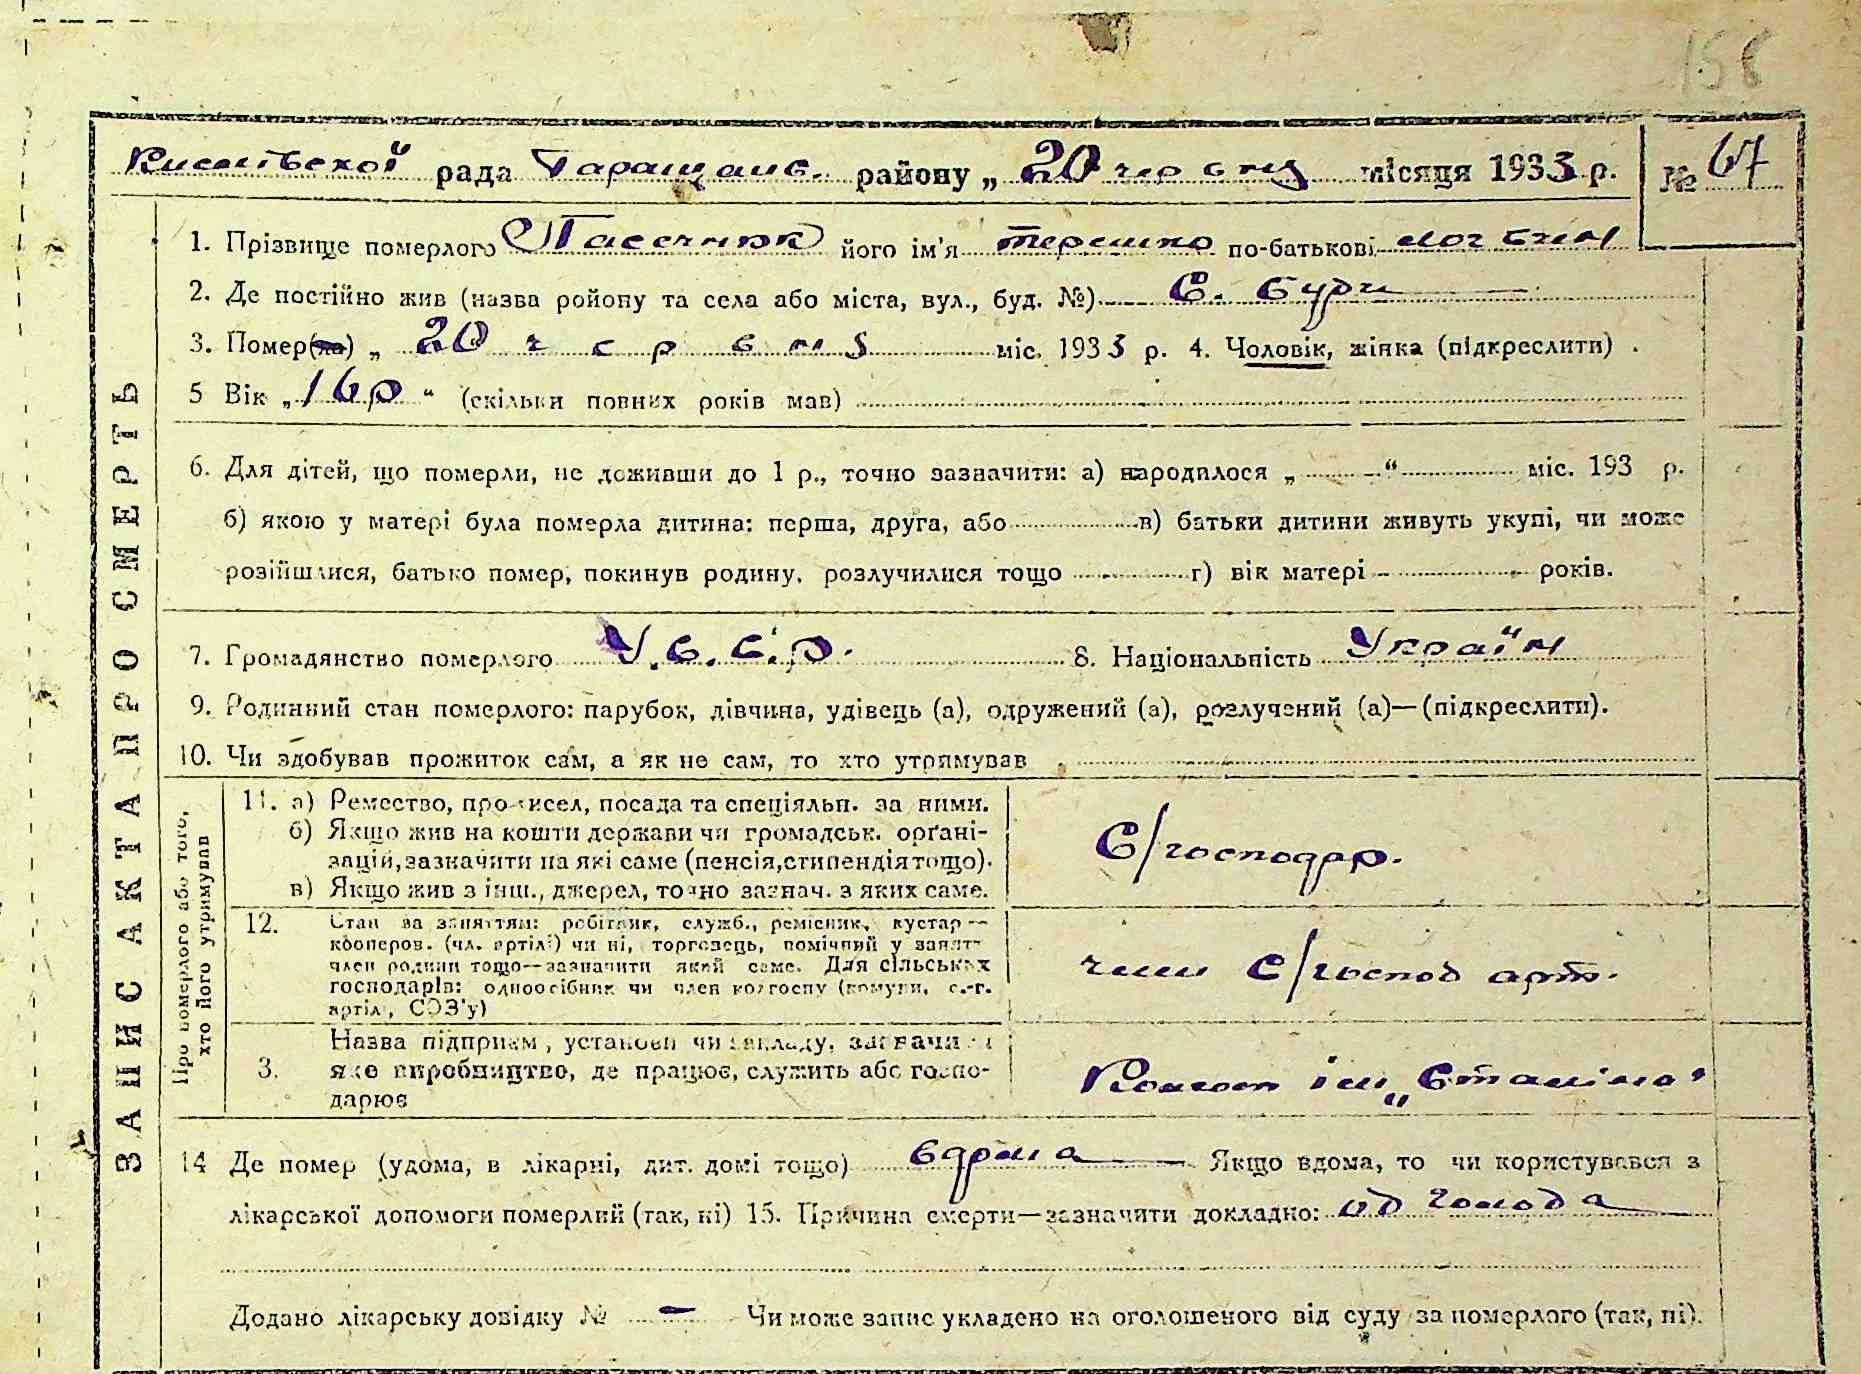 156
рада Таращанс. району „ 20 червня місяця 1933 р. № 67
ЗАПИС АКТА ПРО СМЕРТЬ
1. Прізвище померлого Пасечнюк його ім'я терешко по-батькові
2. Де постійно жив (назва ройону та села або міста, вул., буд. №) С. Буди
3. Помер(ла) „ 20 червня міс. 1933 р. 4. Чоловік, жінка (підкреслити) .
5 Вік „ 16р “ (скільки повних років мав)
6. Для дітей, що померли, не доживши до 1 р., точно зазначити: а) народилося „ “ міс. 193 р.
б) якою у матері була померла дитина: перша, друга, або в) батьки дитини живуть укупі, чи може
розійшлися, батько помер, покинув родину, розлучилися тощо г) вік матері років.
7. Громадянство померлого У.С.С.р. 8. Національність Україн
9. Родинний стан померлого: парубок, дівчина, удівець (а), одружений (а), розлучений (а)—(підкреслити).
10. Чи здобував прожиток сам, а як не сам, то хто утримував
Про померлого або того, хто його утримував
11. а) Ремество, промисел, посада та спеціяльн. за ними.
б) Якщо жив на кошти держави чи громадськ. орґані-
зацій, зазначити на які саме (пенсія, стипендія тощо).
в) Якщо жив з інш., джерел, точно зазнач. з яких саме.
С/господар.
12. Стан за заняттям: робітник, служб., ремісник, кустар—
кооперов. (чл. артілі) чи ні, торговець, помічний у занят-
член родини тощо—зазначити який саме. Для сільських
господарів: одноосібник чи член колгоспу (комуни, с.-г.
артілі, СОЗ'у)
член С/господ арт.
3. Назва підприєм, установи чи закладу, зазначи
яке виробництво, де працює, служить або госпо-
дарює
Колгосп ім „Сталіна"
14 Де помер (удома, в лікарні, дит. домі тощо) вдома Якщо вдома, то чи користувався з
лікарської допомоги померлий (так, ні) 15. Причина смерти—зазначити докладно: од голода
Додано лікарську довідку № – Чи може запис укладено на оголошеного від суду за померлого (так, ні).